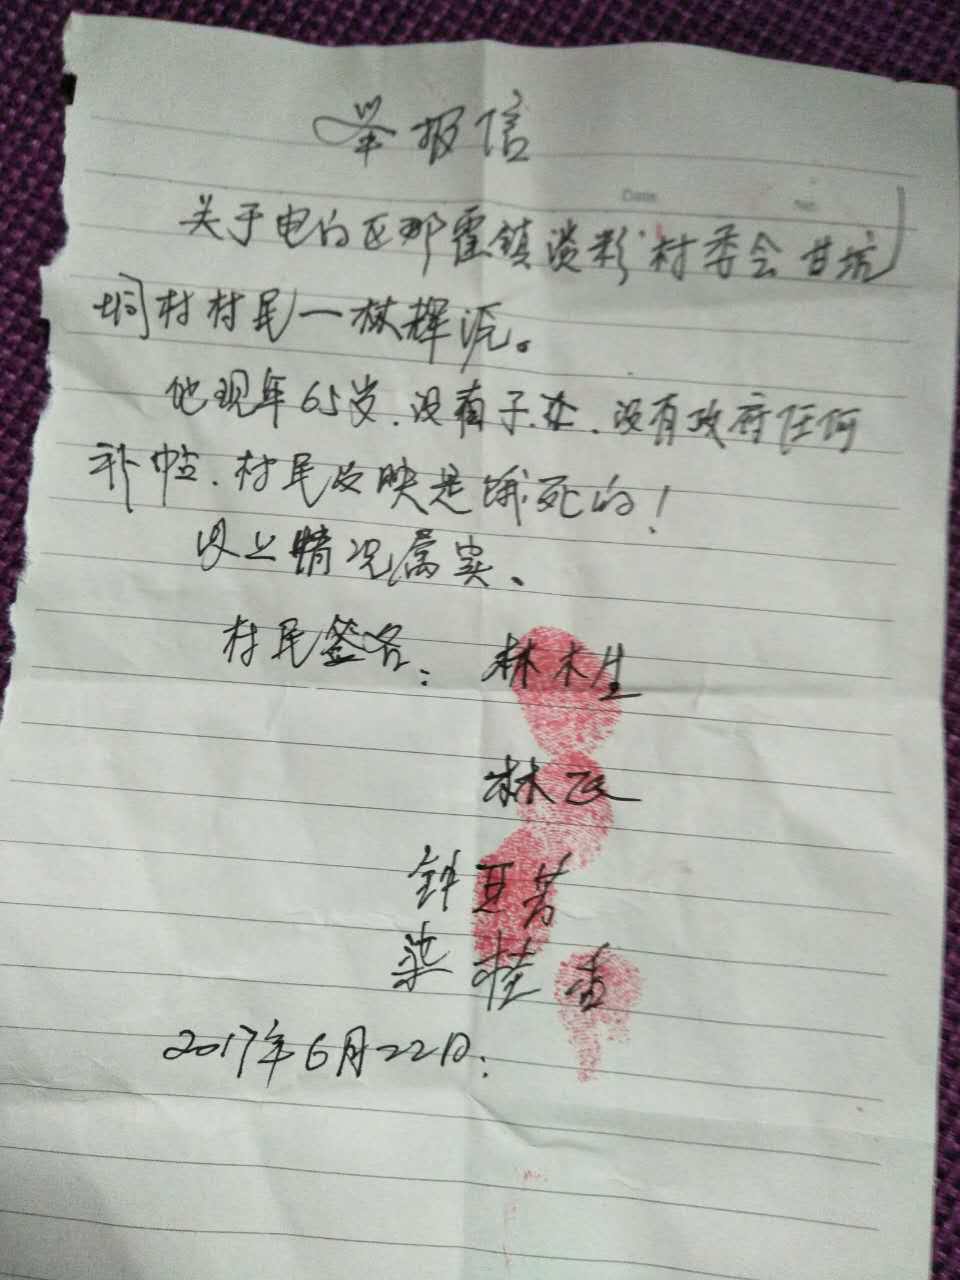 举报信
Date
No.
关于电白区那霍镇淡彩村委会甘坑
垌村村民一林辉沅。
他现年65岁.没有子女.没有政府任何
补帖.村民反映是饿死的！
以上情况属实、
村民签名：林木生
林
钟亚芳
梁桂香
2017年6月22日：